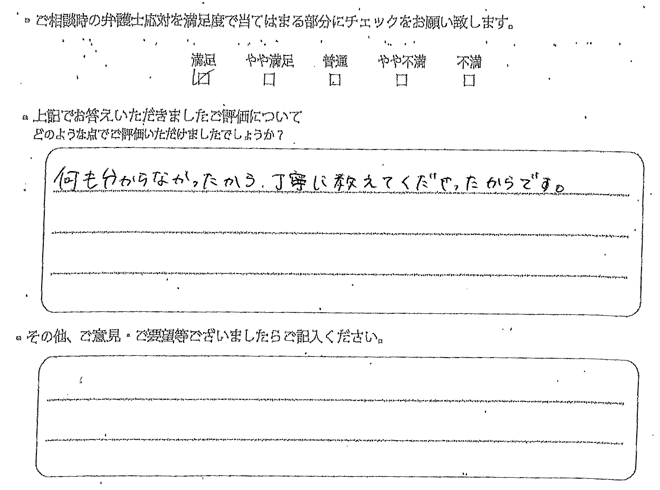 ご相談時の弁護士応対を満足度で当てはまる部分にチェックをお願い致します。
満足 やや満足 普通 やや不満 不満
☑ □ □ □ □
上記でお答えいただきましたご評価について
どのような点でご評価いただけましたでしょうか？
何も分からなかったから、丁寧に教えてくださったからです。
その他、ご意見・ご要望等ございましたらご記入ください。